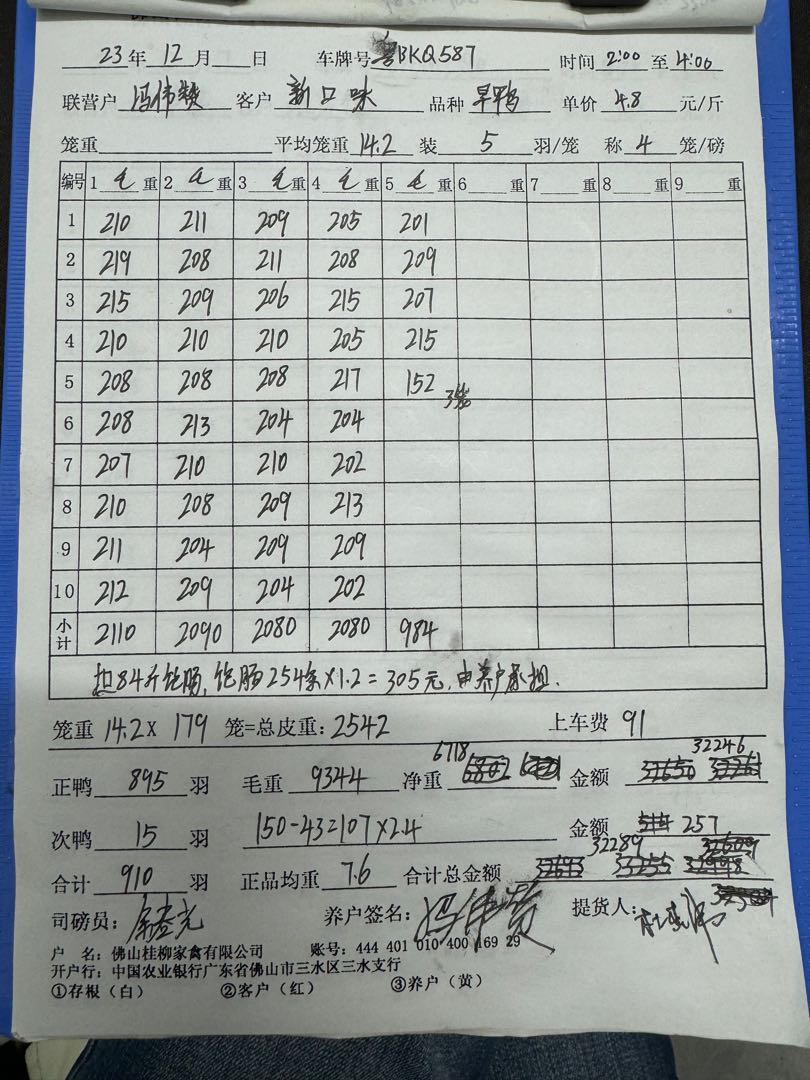 23年12月 日 车牌号 粤BKQ587 时间 2:00 至 4:00
联营户 冯伟赞 客户 新口味 品种 旱鸭 单价 4.8 元/斤
笼重 平均笼重 14.2 装 5 羽/笼 称 4 笼/磅
编号 1 毛 重 2 毛 重 3 毛 重 4 毛 重 5 毛 重 6 重 7 重 8 重 9 重
1 210 211 209 205 201
2 219 208 211 208 209
3 215 209 206 215 207
4 210 210 210 205 215
5 208 208 208 217 152 3笼
6 208 213 204 204
7 207 210 210 202
8 210 208 209 213
9 211 204 209 209
10 212 209 204 202
小计 2110 2090 2080 2080 984
扣84斤饱肠,饱肠254条×1.2=305元,由养户承担.
笼重 14.2× 179 笼=总皮重:2542 上车费 91
正鸭 895 羽 毛重 9344 净重 6718 金额 32246
次鸭 15 羽 150-43=107×2.4 金额 257
合计 910 羽 正品均重 7.6 合计总金额 32289
司磅员: 养户签名:冯伟赞 提货人:
户 名:佛山桂柳家禽有限公司 账号:444 401 010 400 169 29
开户行:中国农业银行广东省佛山市三水区三水支行
①存根(白) ②客户(红) ③养户(黄)